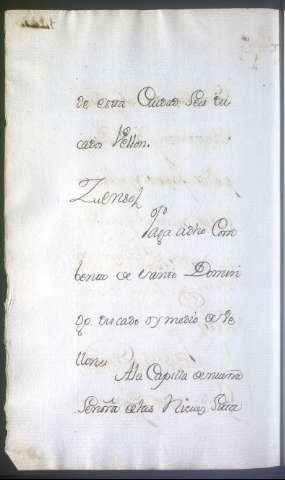 de esta Ciudad Seis du
cados Vellon.
Zuensol
Paga a dho Com
bento de Santo Domin
go. ducado y medio de Ve
llon.
A la Capilla de nuestra
Señora de las Nieves